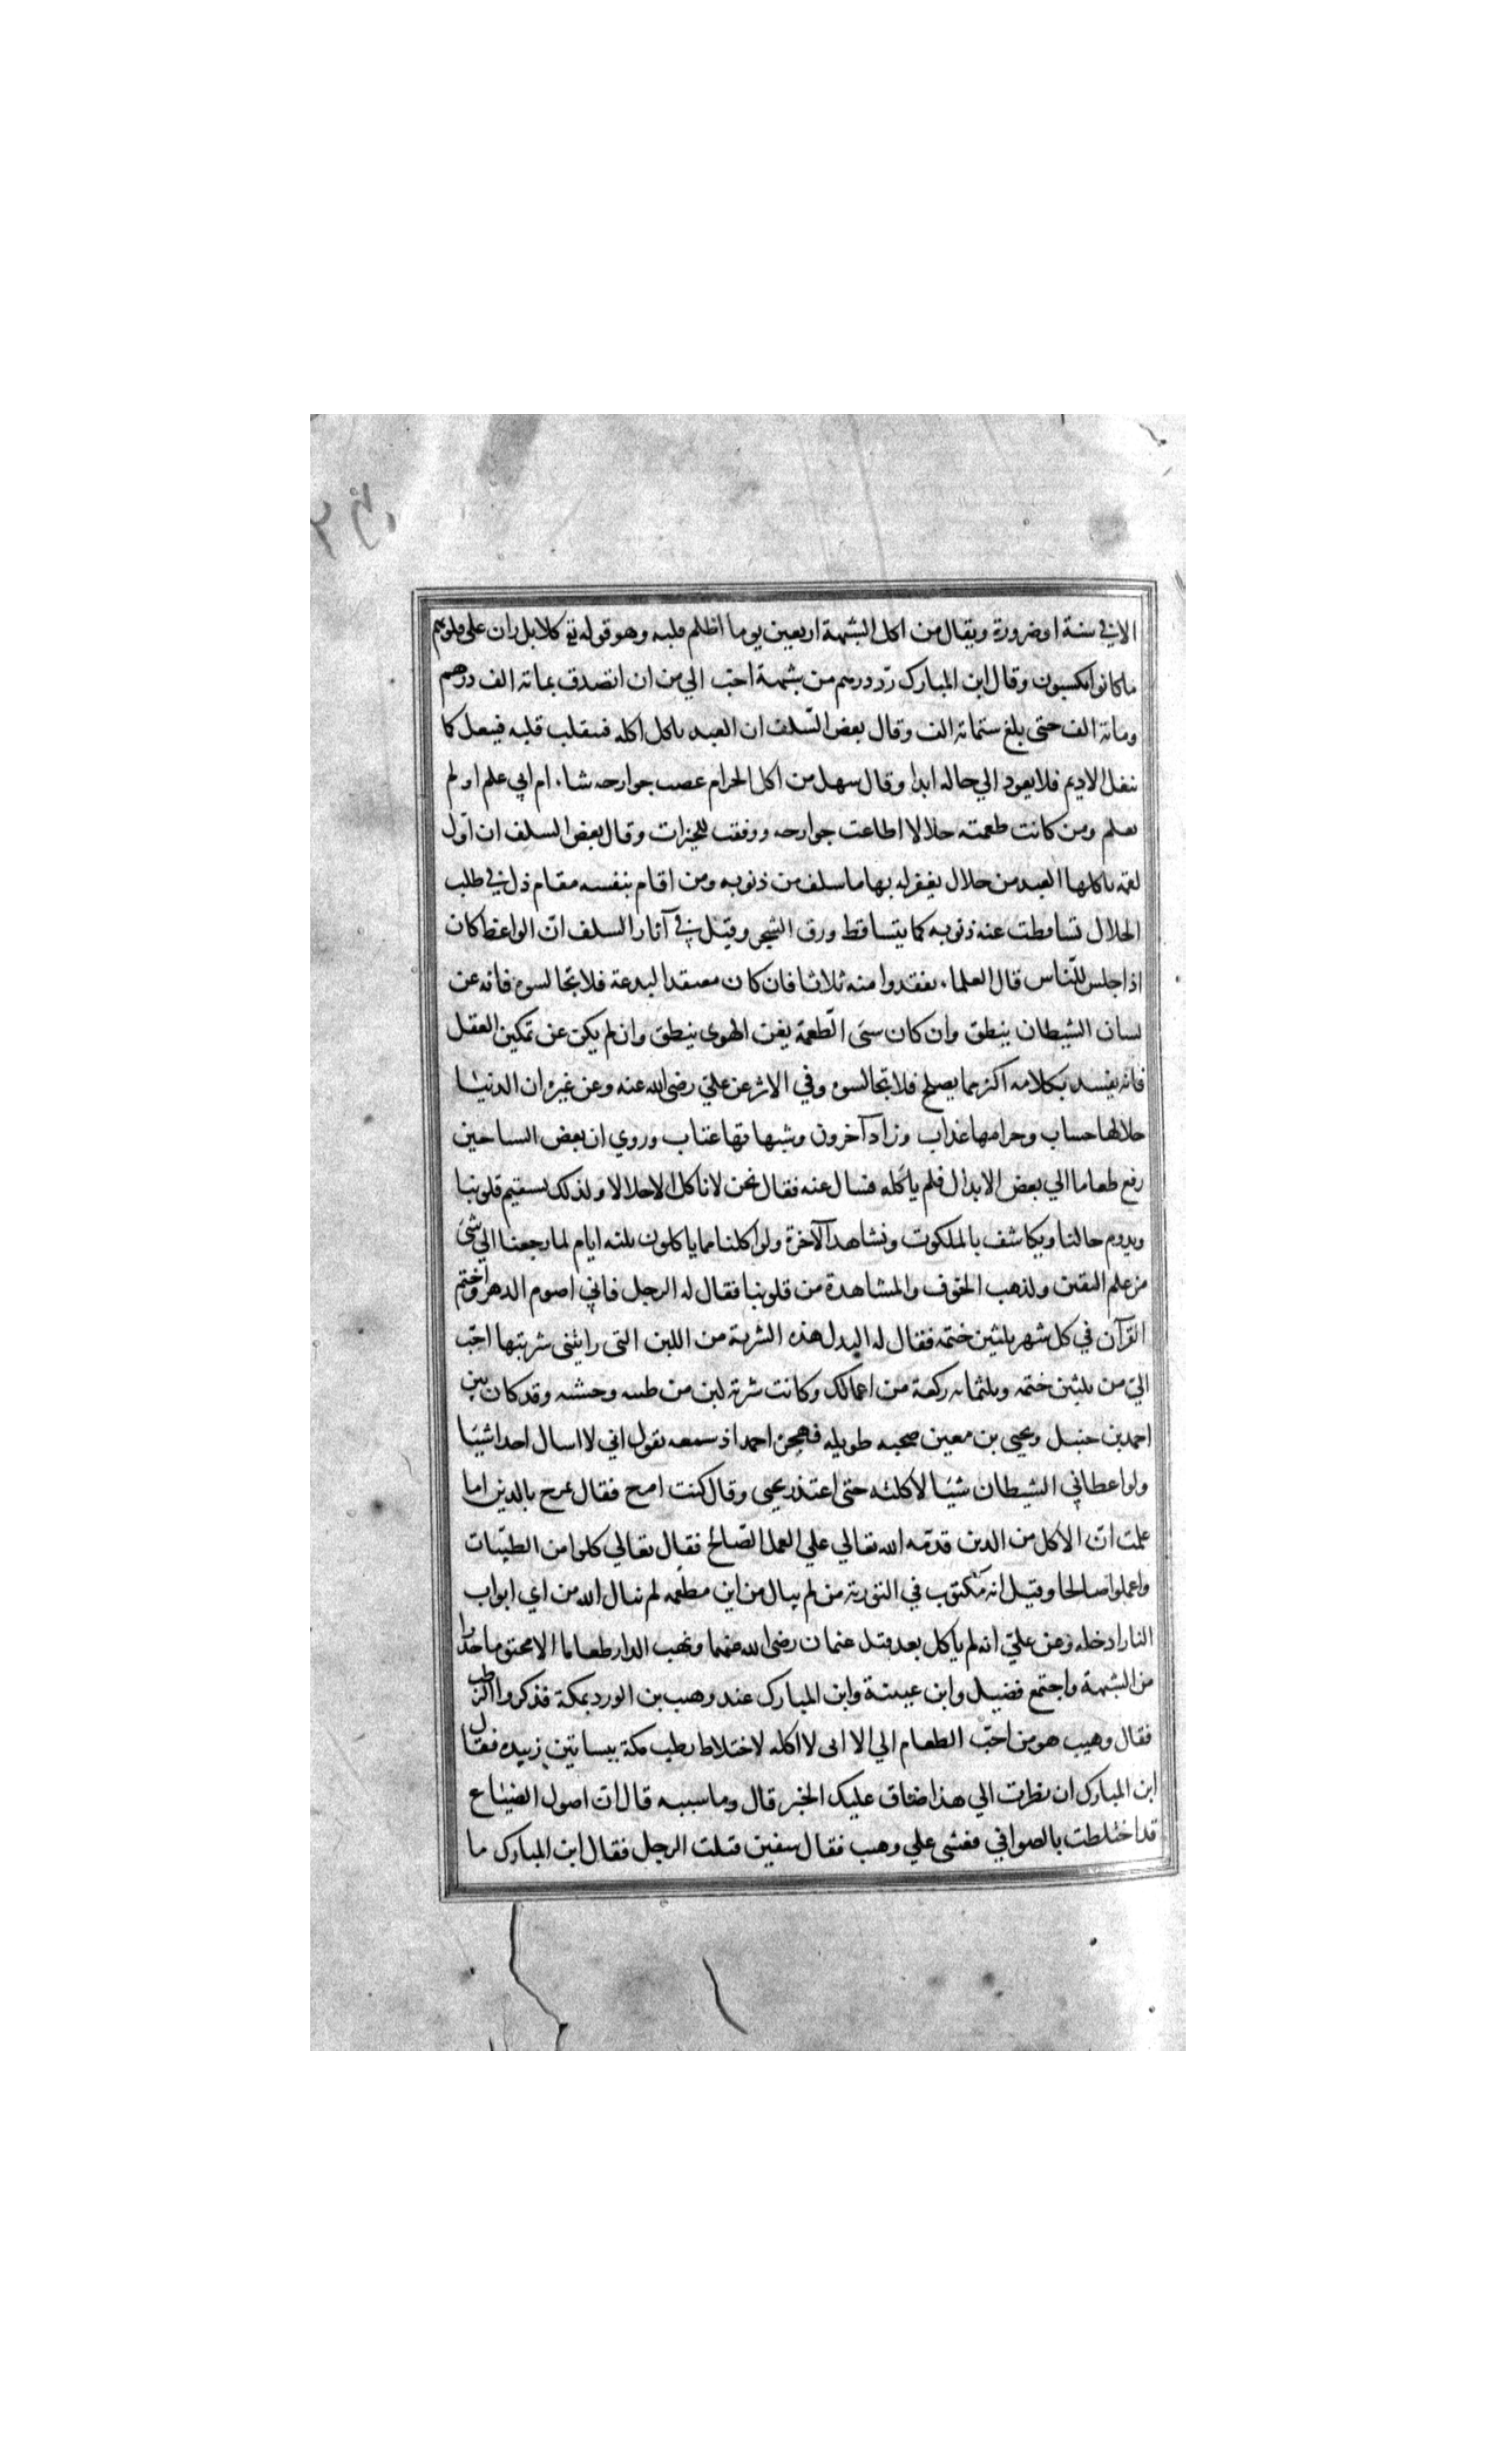 الا في سنة او ضرورة ويقال من اكل الشبهة اربعين يوما اظلم قلبه وهو قوله تع كلا بل ران على قلوبهم
ما كانوا يكسبون وقال ابن المبارك رد درهم من شبهة احب الي من ان اتصدق بمائة الف درهم
ومائة الف حتى بلغ ستمائة الف وقال بعض السلف ان العبد ياكل اكله فينقلب قلبه فينغل كما
ينغل الاديم فلا يعود الي حاله ابدا وقال سهل من اكل الحرام عصت جوارحه شاء ام ابي علم او لم
يعلم ومن كانت طعمته حلالا اطاعت جوارحه ووفقت للخيرات وقال بعض السلف ان اول
لقمه ياكلها العبد من حلال يغفر له بها ما سلف من ذنوبه ومن اقام بنفسه مقام ذل في طلب
الحلال تساقطت عنه ذنوبه كما يتساقط ورق الشجر وقيل في آثار السلف ان الواعظ كان
اذا جلس للناس قال العلماء تفقدوا منه ثلاثا فان كان معتقدا لبدعة فلا تجالسوه فانه عن
لسان الشيطان ينطق وان كان سيئ الطعمة فعن الهوى ينطق وان لم يكن عن تمكين العقل
فانه يفسد بكلامه اكثر مما يصلح فلا تجالسوه وفي الاثر عن علي رضي الله عنه وعن غيره ان الدنيا
حلالها حساب وحرامها عذاب وزاد آخرون وشبهاتها عتاب وروي ان بعض السائحين
رفع طعاما الي بعض الابدال فلم ياكله فسال عنه فقال نحن لا ناكل الا حلالا ولذلك يستقيم قلوبنا
ويدوم حالنا ويكاشف بالملكوت ونشاهد الآخرة ولو اكلنا مما ياكلون ثلثه ايام لما رجعنا الي شئ
من علم اليقين ولذهب الخوف والمشاهدة من قلوبنا فقال له الرجل فاني اصوم الدهر واختم
القرآن في كل شهر ثلثين ختمه فقال له البدل هذه الشربة من اللبن التى رايتنى شربتها احب
الي من ثلثين ختمه وثلثمائه ركعة من اعمالك وكانت شربة لبن من ظبيه وحشيه وقد كان بين
احمد بن حنبل ويحيى بن معين صحبه طويله فهجره احمد اذ سمعه يقول اني لا اسال احدا شيئا
ولو اعطاني الشيطان شيئا لاكلته حتى اعتذر يحيى وقال كنت امزح فقال تمزح بالدين اما
علمت ان الاكل من الدين قدمه الله تعالي علي العمل الصالح فقال تعالي كلوا من الطيبات
واعملوا صالحا وقيل انه مكتوب في التورية من لم يبال من اين مطعمه لم يبال الله من اي ابواب
النار ادخله وعن علي انه لم ياكل بعد قتل عثمان رضي الله عنهما ونهب الدار طعاما الا مختوما حذرا
من الشبهة واجتمع فضيل وابن عيينة وابن المبارك عند وهيب بن الورد بمكة فذكروا الرطب
فقال وهيب هو من احب الطعام الي الا انى لا اكله لاختلاط رطب مكة ببساتين زبيده فقال
ابن المبارك ان نظرت الي هذا ضاق عليك الخبز قال وما سببه قال ان اصول الضياع
قد اختلطت بالصوافي فغشي علي وهب فقال سفين قتلت الرجل فقال ابن المبارك ما